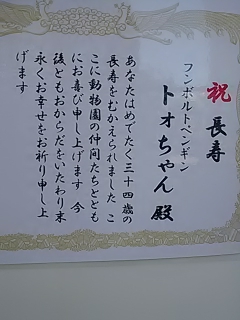 祝 長寿
フンボルトペンギン
トオちゃん 殿
あなたはめでたく三十四歳の
長寿をむかえられました こ
こに動物園の仲間たちととも
にお喜び申し上げます 今
後ともおからだをいたわり末
永くお幸せをお祈り申し上
げます